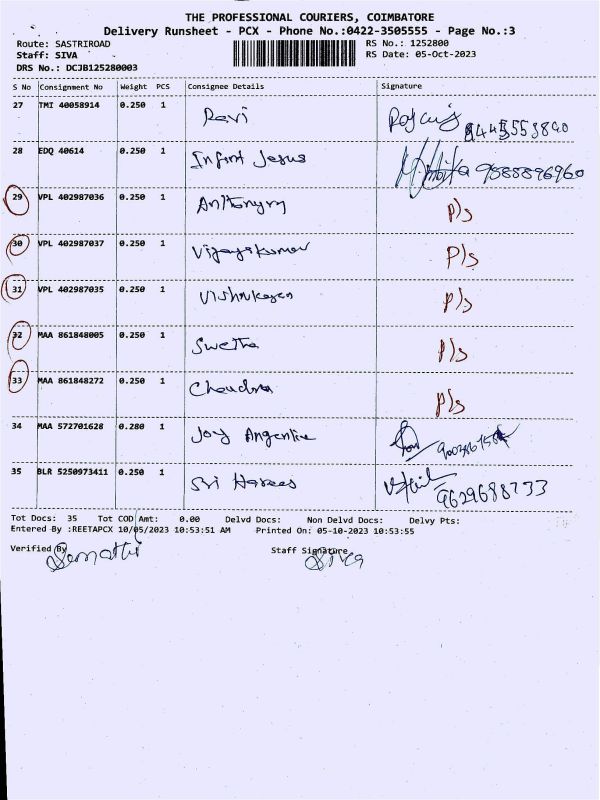 THE PROFESSIONAL COURIERS, COIMBATORE
Delivery Runsheet - PCX - Phone No.:0422-3505555 - Page No.:3
Route: SASTRIROAD RS No.: 1252800
Staff: SIVA RS Date: 05-Oct-2023
DRS No.: DCJB125280003
S No Consignment No Weight PCS Consignee Details Signature
27 TMI 40058914 0.250 1 Ravi
28 EDQ 40614 0.250 1 Infant Jesus 9888896960
29 VPL 402987036 0.250 1 Anthonym P/s
30 VPL 402987037 0.250 1 Vijayakumar P/s
31 VPL 402987035 0.250 1 P/s
32 MAA 861848005 0.250 1 Swetha P/s
33 MAA 861848272 0.250 1 Chandra P/s
34 MAA 572701628 0.280 1 Joy Angentie
35 BLR 5250973411 0.250 1 Sri Harees 9629688733
Tot Docs: 35 Tot COD Amt: 0.00 Delvd Docs: Non Delvd Docs: Delvy Pts:
Entered By :REETAPCX 10/05/2023 10:53:51 AM Printed On: 05-10-2023 10:53:55
Verified By Staff Signature
Siva